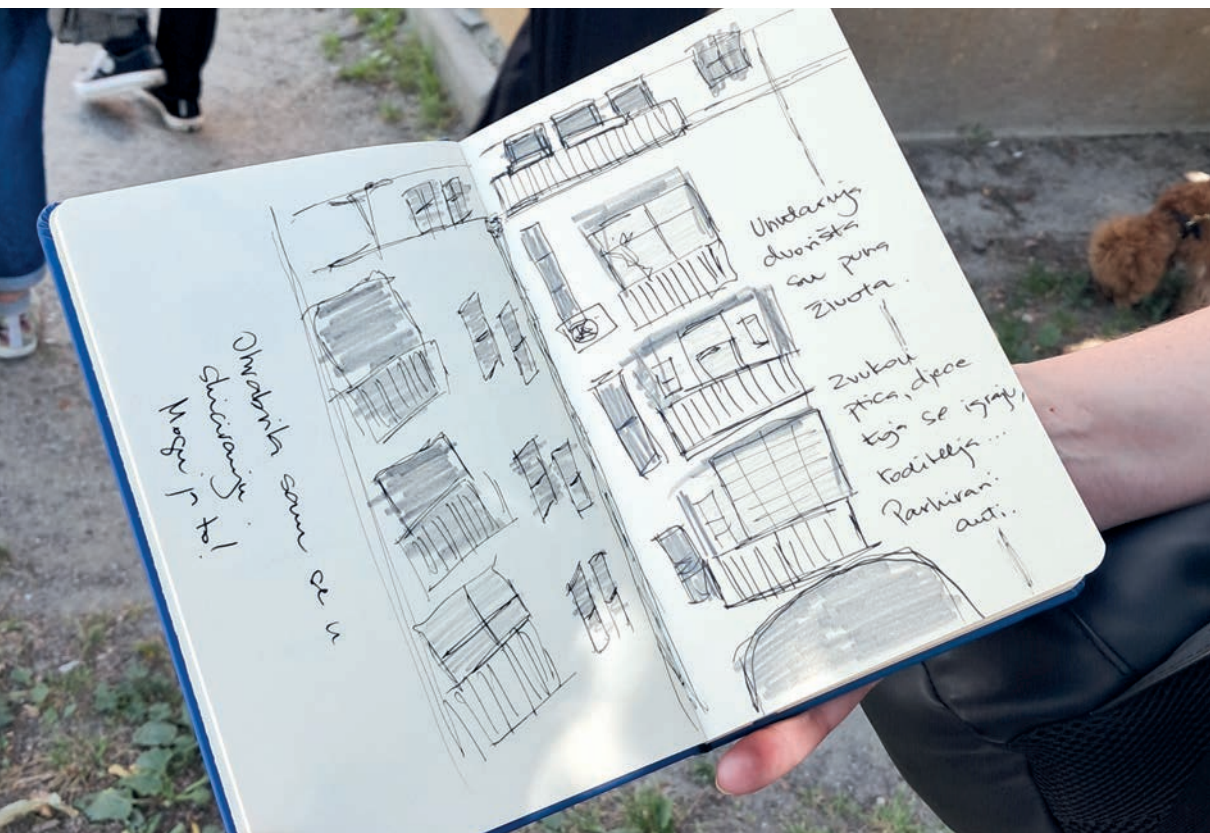 Ohrabrila sam se u
skiciranju.
Mogu ja to!
Unutarnja
dvorišta
su puna
života.
Zvukovi
ptica, djece
koja se igraju,
roditelja...
Parkirani
auti.